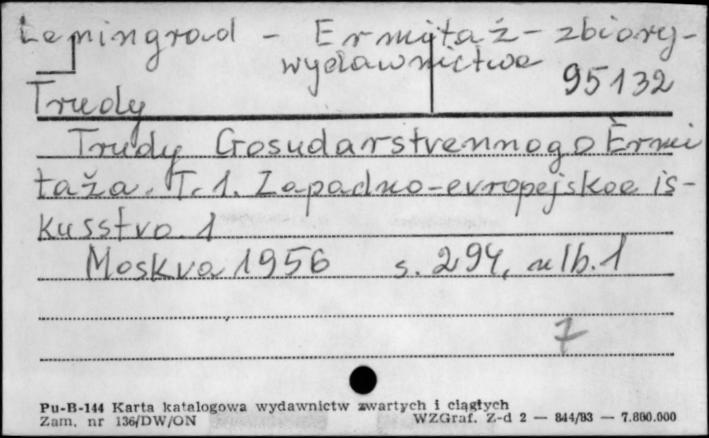 Leningrad - Ermitaż - zbiory -
wydawnictwa
95132
Trudy
Trudy Gosudarstvennogo Èrmi
taža. T. 1. Zapadno-evropejskoe is-
kusstvo 1
Moskva 1956 s. 294, alb. 1
7
Pu-B-144 Karta katalogowa wydawnictw zwartych i ciągłych
Zam. nr 136/DW/ON WZGraf. Z-d 2 — 844/83 — 7.800.000